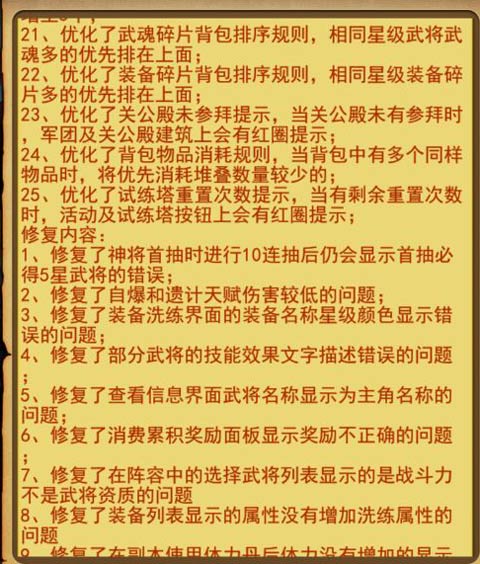 增至5个;
21、优化了武魂碎片背包排序规则，相同星级武将武
魂多的优先排在上面;
22、优化了装备碎片背包排序规则，相同星级装备碎
片多的优先排在上面;
23、优化了关公殿未参拜提示，当关公殿未有参拜时
，军团及关公殿建筑上会有红圈提示;
24、优化了背包物品消耗规则，当背包中有多个同样
物品时，将优先消耗堆叠数量较少的;
25、优化了试练塔重置次数提示，当有剩余重置次数
时，活动及试练塔按钮上会有红圈提示;
修复内容:
1、修复了神将首抽时进行10连抽后仍会显示首抽必
得5星武将的错误;
2、修复了自爆和遗计天赋伤害较低的问题;
3、修复了装备洗练界面的装备名称星级颜色显示错
误的问题;
4、修复了部分武将的技能效果文字描述错误的问题
;
5、修复了查看信息界面武将名称显示为主角名称的
问题;
6、修复了消费累积奖励面板显示奖励不正确的问题
;
7、修复了在阵容中的选择武将列表显示的是战斗力
不是武将资质的问题
8、修复了装备列表显示的属性没有增加洗练属性的
问题
9、修复了在副本使用体力丹后体力没有增加的显示